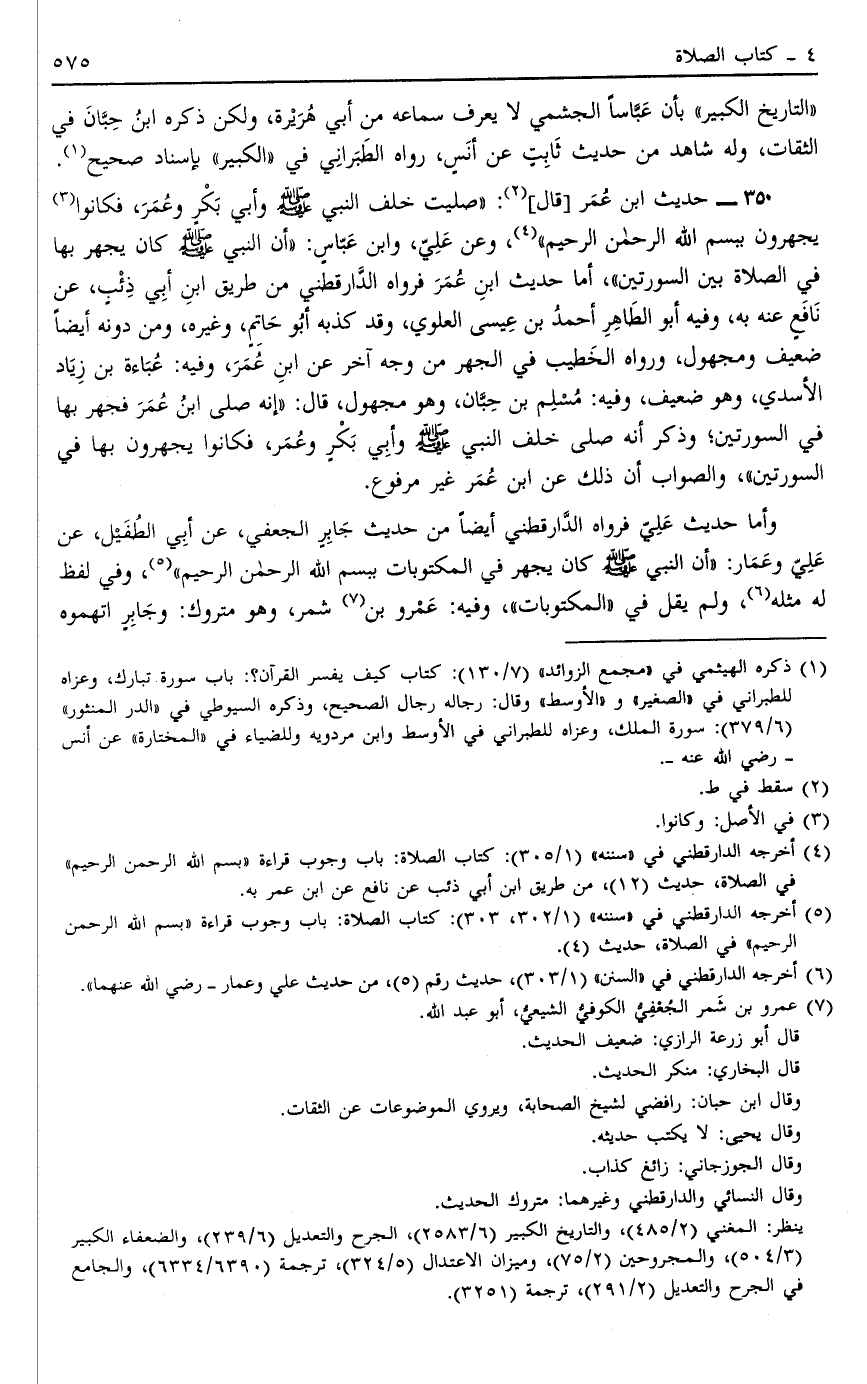 ٤ ـ كتاب الصلاة ٥٧٥
«التاريخ الكبير» بأن عَبَّاساً الجشمي لا يعرف سماعه من أبي هُرَيْرة، ولكن ذكره ابنُ حِبَّانَ في
الثقات، وله شاهد من حديث ثَابِتٍ عن أنَسٍ، رواه الطَبَرَانِي في «الكبير» بإسناد صحيح(١).
٣٥٠ ـ حديث ابن عُمَر [قال](٢): «صليت خلف النبي ﷺ وأبي بَكْرٍ وعُمَرَ، فكانوا(٣)
يجهرون ببسم الله الرحمٰن الرحيم»(٤)، وعن عَلِيّ، وابن عَبّاسٍ: «أن النبي ﷺ كان يجهر بها
في الصلاة بين السورتين»، أما حديث ابنِ عُمَرَ فرواه الدَّارقطني من طريق ابنِ أبي ذِئْبٍ، عن
نَافَعٍ عنه به، وفيه أبو الطَاهِرِ أحمدُ بن عِيسى العلوي، وقد كذبه أبُو حَاتِمٍ، وغيره، ومن دونه أيضاً
ضعيف ومجهول، ورواه الخَطيب في الجهر من وجه آخر عن ابنِ عُمَرَ، وفيه: عُبَاءة بن زِيَاد
الأسدي، وهو ضعيف، وفيه: مُسْلِم بن حِبَّان، وهو مجهول، قال: «إنه صلى ابنُ عُمَرَ فجهر بها
في السورتين؛ وذكر أنه صلى خلف النبي ﷺ وأبي بَكْرٍ وعُمَر، فكانوا يجهرون بها في
السورتين»، والصواب أن ذلك عن ابن عُمَر غير مرفوع.
وأما حديث عَلِيّ فرواه الدَّارقطني أيضاً من حديث جَابِرٍ الجعفي، عن أبِي الطُفَيْل، عن
عَلِيّ وعَمَار: «أن النبي ﷺ كان يجهر في المكتوبات ببسم الله الرحمٰن الرحيم»(٥)، وفي لفظ
له مثله(٦)، ولم يقل في «المكتوبات»، وفيه: عَمْرو بن(٧) شمر، وهو متروك: وجَابِرٍ اتهموه
(١) ذكره الهيثمي في «مجمع الزوائد» (١٣٠/٧): كتاب كيف يفسر القرآن؟: باب سورة تبارك، وعزاه
للطبراني في «الصغير» و «الأوسط» وقال: رجاله رجال الصحيح، وذكره السيوطي في «الدر المنثور»
(٣٧٩/٦): سورة الملك، وعزاه للطبراني في الأوسط وابن مردويه وللضياء في «المختارة» عن أنس
ـ رضي الله عنه ـ.
(٢) سقط في ط.
(٣) في الأصل: وكانوا.
(٤) أخرجه الدارقطني في «سننه» (٣٠٥/١): كتاب الصلاة: باب وجوب قراءة «بسم الله الرحمن الرحيم»
في الصلاة، حديث (١٢)، من طريق ابن أبي ذئب عن نافع عن ابن عمر به.
(٥) أخرجه الدارقطني في «سننه» (٣٠٢/١، ٣٠٣): كتاب الصلاة: باب وجوب قراءة «بسم الله الرحمن
الرحيم» في الصلاة، حديث (٤).
(٦) أخرجه الدارقطني في «السنن» (٣٠٣/١)، حديث رقم (٥)، من حديث علي وعمار ـ رضي الله عنهما».
(٧) عمرو بن شَمر الجُعْفِيُّ الكوفيُّ الشيعيُّ، أبو عبد الله.
قال أبو زرعة الرازي: ضعيف الحديث.
قال البخاري: منكر الحديث.
وقال ابن حبان: رافضي لشيخ الصحابة، ويروي الموضوعات عن الثقات.
وقال يحيى: لا يكتب حديثه.
وقال الجوزجاني: زائغ كذاب.
وقال النسائي والدارقطني وغيرهما: متروك الحديث.
ينظر: المغني (٤٨٥/٢)، والتاريخ الكبير (٢٥٨٣/٦)، الجرح والتعديل (٢٣٩/٦)، والضعفاء الكبير
(٥٠٤/٣)، والمجروحين (٧٥/٢)، وميزان الاعتدال (٣٢٤/٥)، ترجمة (٦٣٣٤/٦٣٩٠)، والجامع
في الجرح والتعديل (٢٩١/٢)، ترجمة (٣٢٥١).